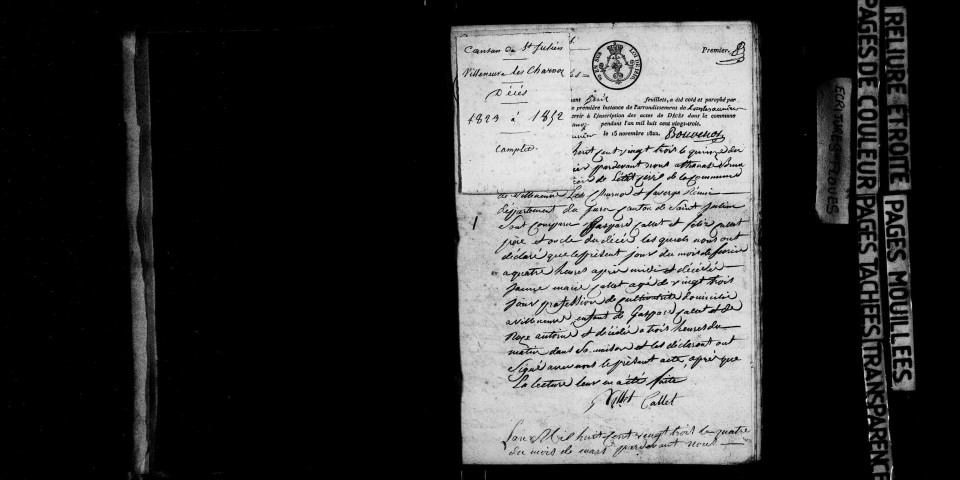 Canton de St Julien
Villeneuve les Charnod
Décès
1823 à 1852
Complet.
Premier.
feuillets, a été coté et paraphé par
première instance de l'arrondissement de
servir à l'inscription des actes de DÉCÈS dans la commune
pendant l'an mil huit cent vingt-trois.
le 15 novembre 1822. Bouvenot
huit cent vingt trois le quinze du
pardevant nous
de L'état civil de la commune
de villeneuve Les Charnod et
département du jura canton de Saint Julien
Sont comparu Gaspard callet et félix callet
père et oncle du décédé les quels nous ont
déclaré que le présent jour du mois de février
a quatre heures après midi et décédé
marie callet agé de vingt trois
jour profession de cultivateur domicilié
a villeneuve enfant de Gaspard callet et de
Roze antoine et décédé a trois heures du
matin dans Sa maison et les déclarant ont
Signé avec nous le présent acte, après que
La lecture leur en a été faite
Callet Callet
L'an Mil huit cent vingt trois le quatre
du mois de mars pardevant nous
RELIURE ETROITE PAGES MOUILLEES
PAGES DE COULEUR PAGES TACHEES TRANSPARENCE
ECRITURES FLOUES